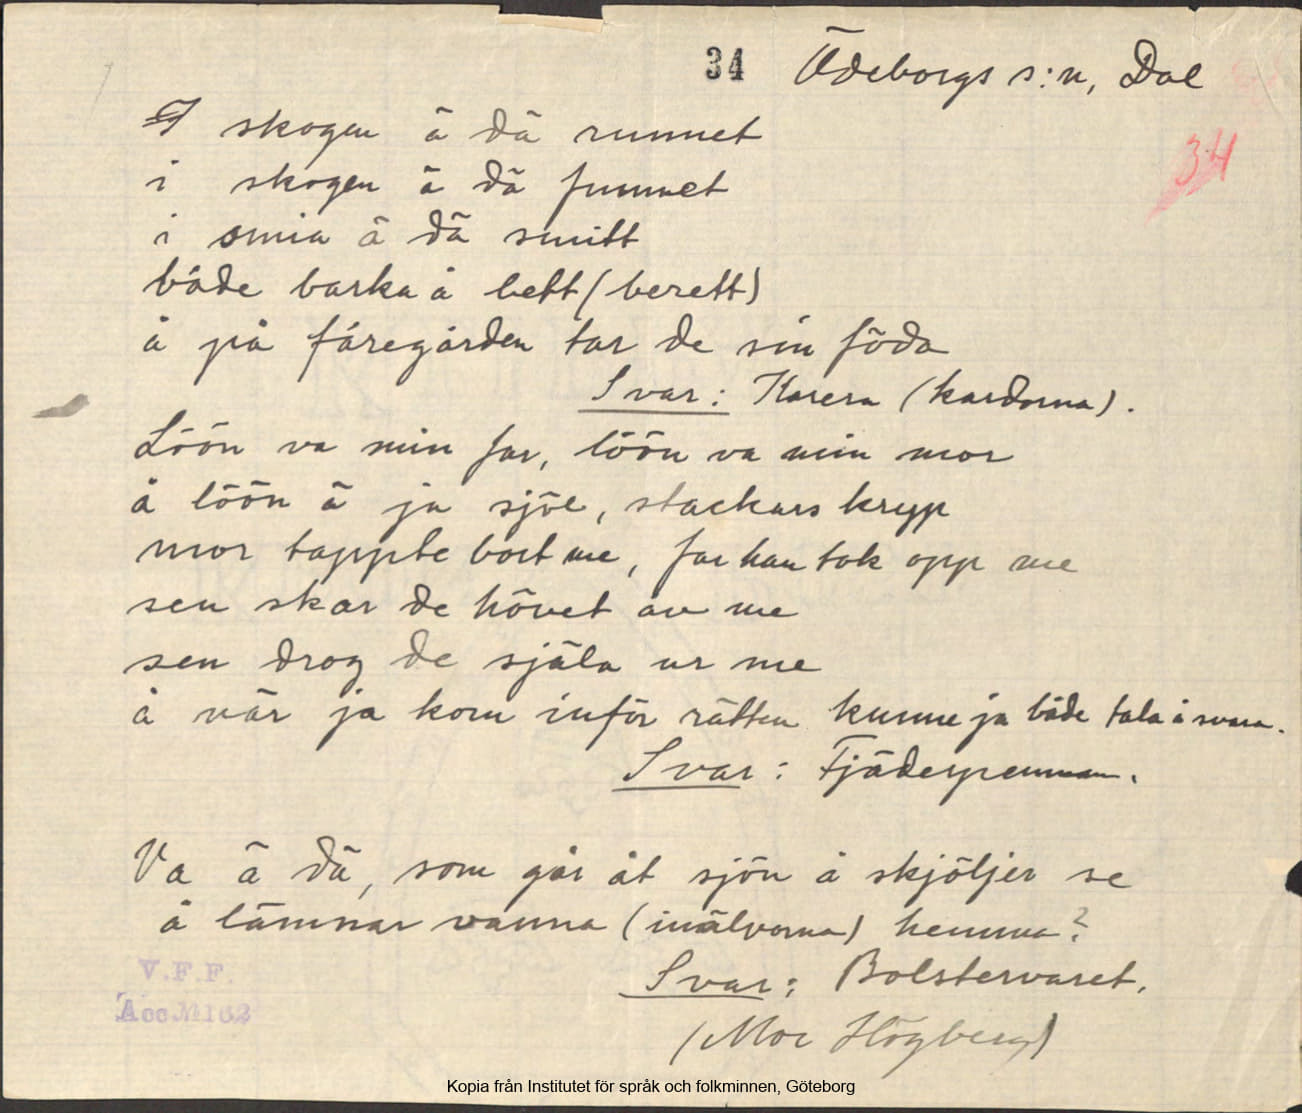 34 Ödeborgs s:n, Dal
34
I skogen ä dä runnet
i skogen ä dä funnet
i smia ä dä smitt
både barka å bett (berett)
å på fåregården tar de sin föda
Svar: Karera (kardorna).
Löön va min far, löön va min mor
å löön ä ja sjöl, stackars kryp
mor tappte bort me, far han tok opp me
sen skar de hövet av me
sen drog de själa ur me
å vär ja kom inför rätten kunne ja både tala å svara.
Svar: Fjäderpennan.
Va ä dä, som går åt sjön å skjöljer se
å lämnar vanna (inälvorna) hemma?
Svar: Bolstervaret.
(Mor Högberg)
V.F.F.
Acc. № 162
Kopia från Institutet för språk och folkminnen, Göteborg